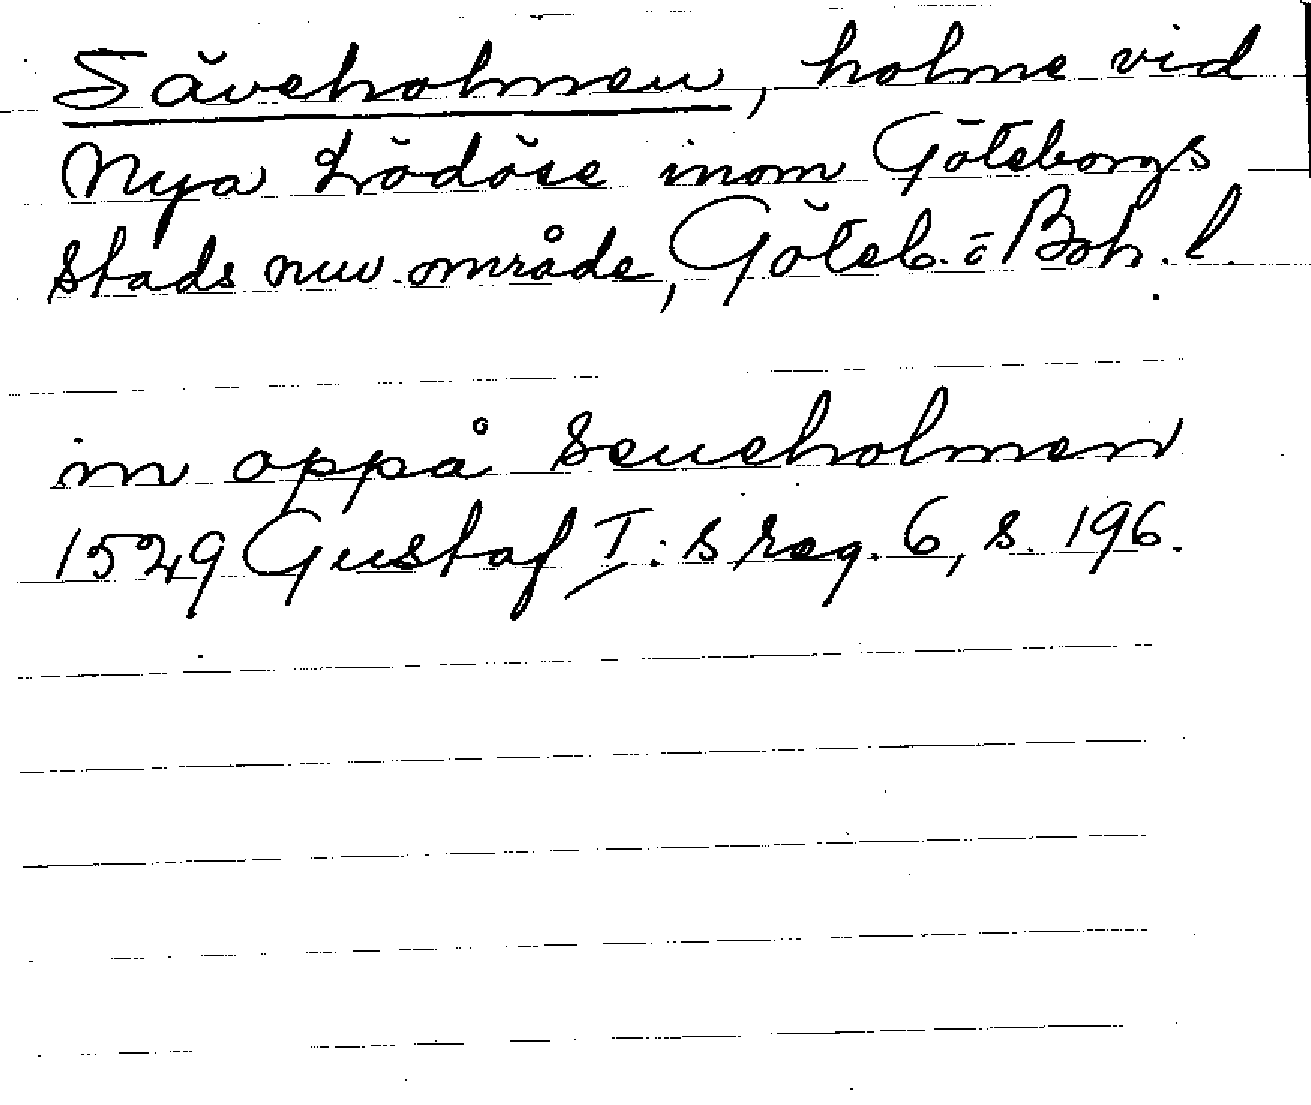 Säveholmen, holme vid
Nya Lödöse inom Göteborgs
stads nuv. område, Göteb. o Boh. l.
in oppå Seueholmen
1529 Gustaf I:s reg. 6, s. 196.